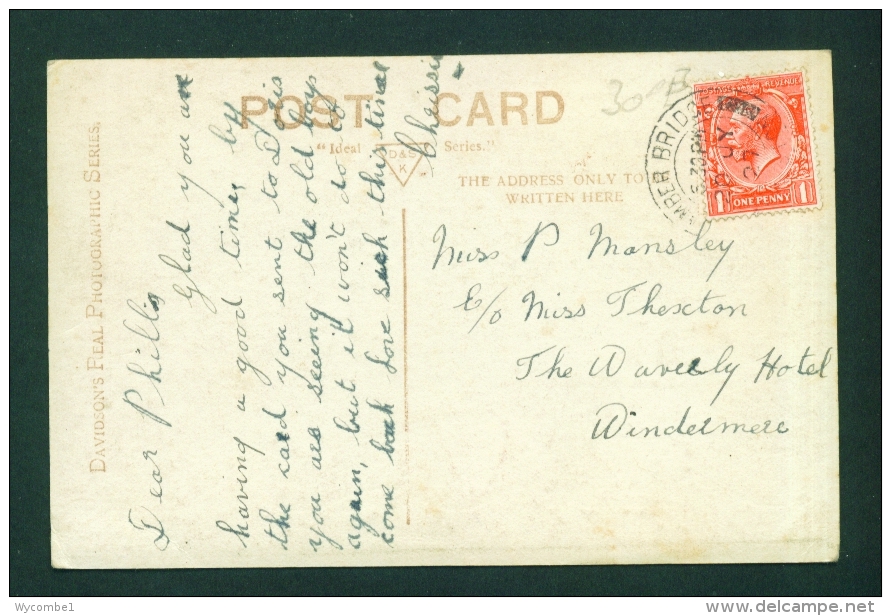 POST CARD
"Ideal Series."
D&S
K
THE ADDRESS ONLY TO
WRITTEN HERE
DAVIDSON'S REAL PHOTOGRAPHIC SERIES.
BER BRIDGE
REVENUE
1 ONE PENNY 1
Dear Phillis
Glad you are
having a good time, by
the card you sent to Doris
you are seeing the old boys
again, but it won't do to
come back love sick this time
Chrissie
Miss P Mansley
C/o Miss Thexton
The Waverly Hotel
Windermere
Wycombe1
www.delcampe.net